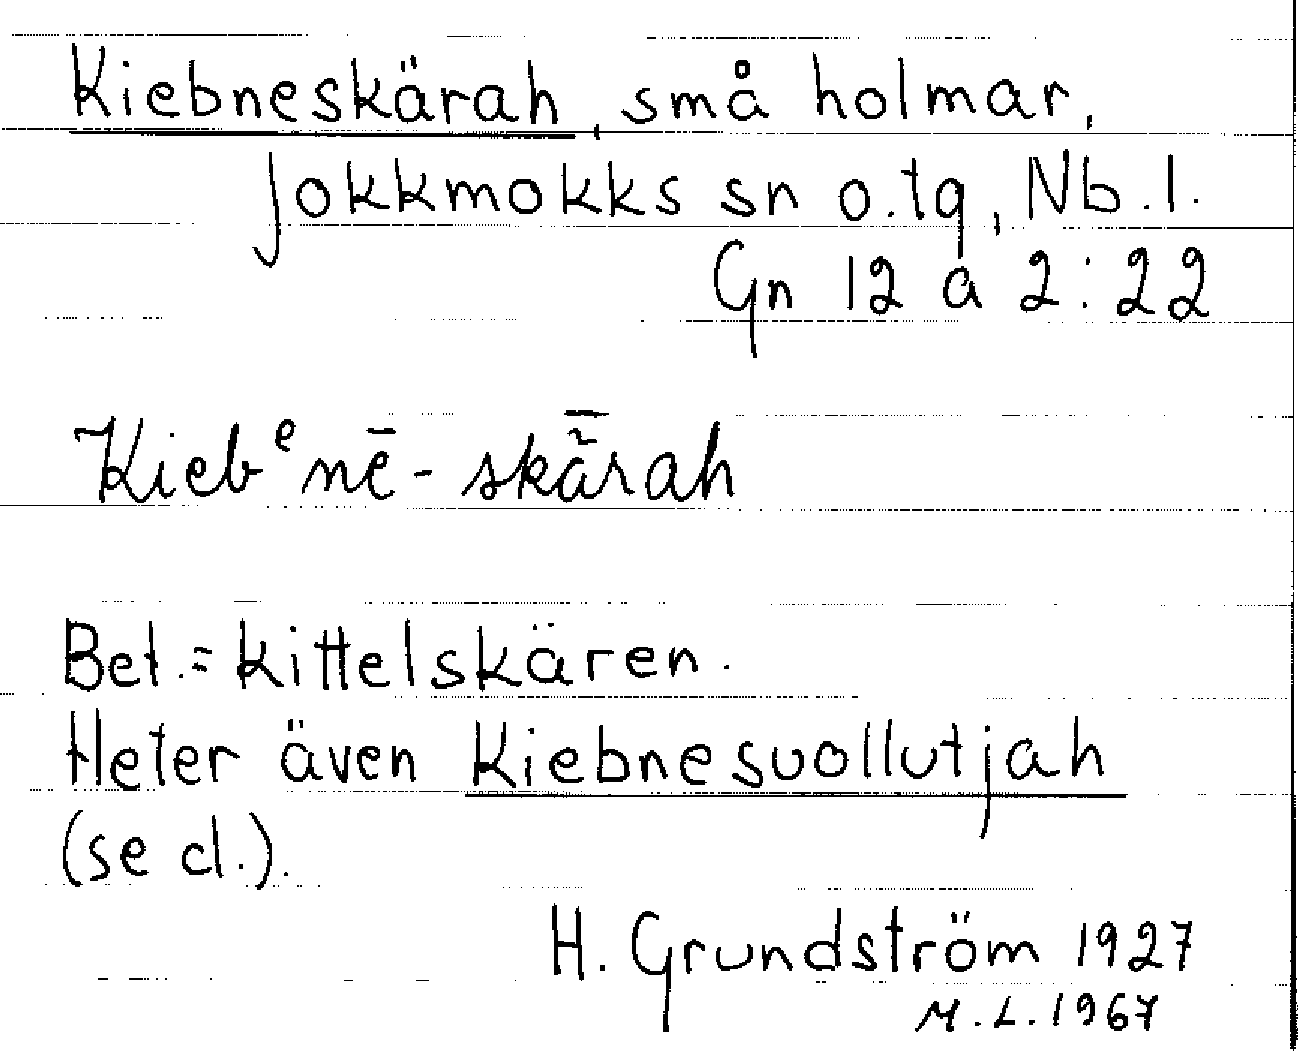 Kiebneskärah, små holmar,
Jokkmokks sn o.tg, Nb.l.
Gn 12 a 2:22
Kiebᵉnē-skǟ̃rah
Bet.= kittelskären.
Heter även Kiebnesuollutjah
(se d.).
H. Grundström 1927
M.L. 1967